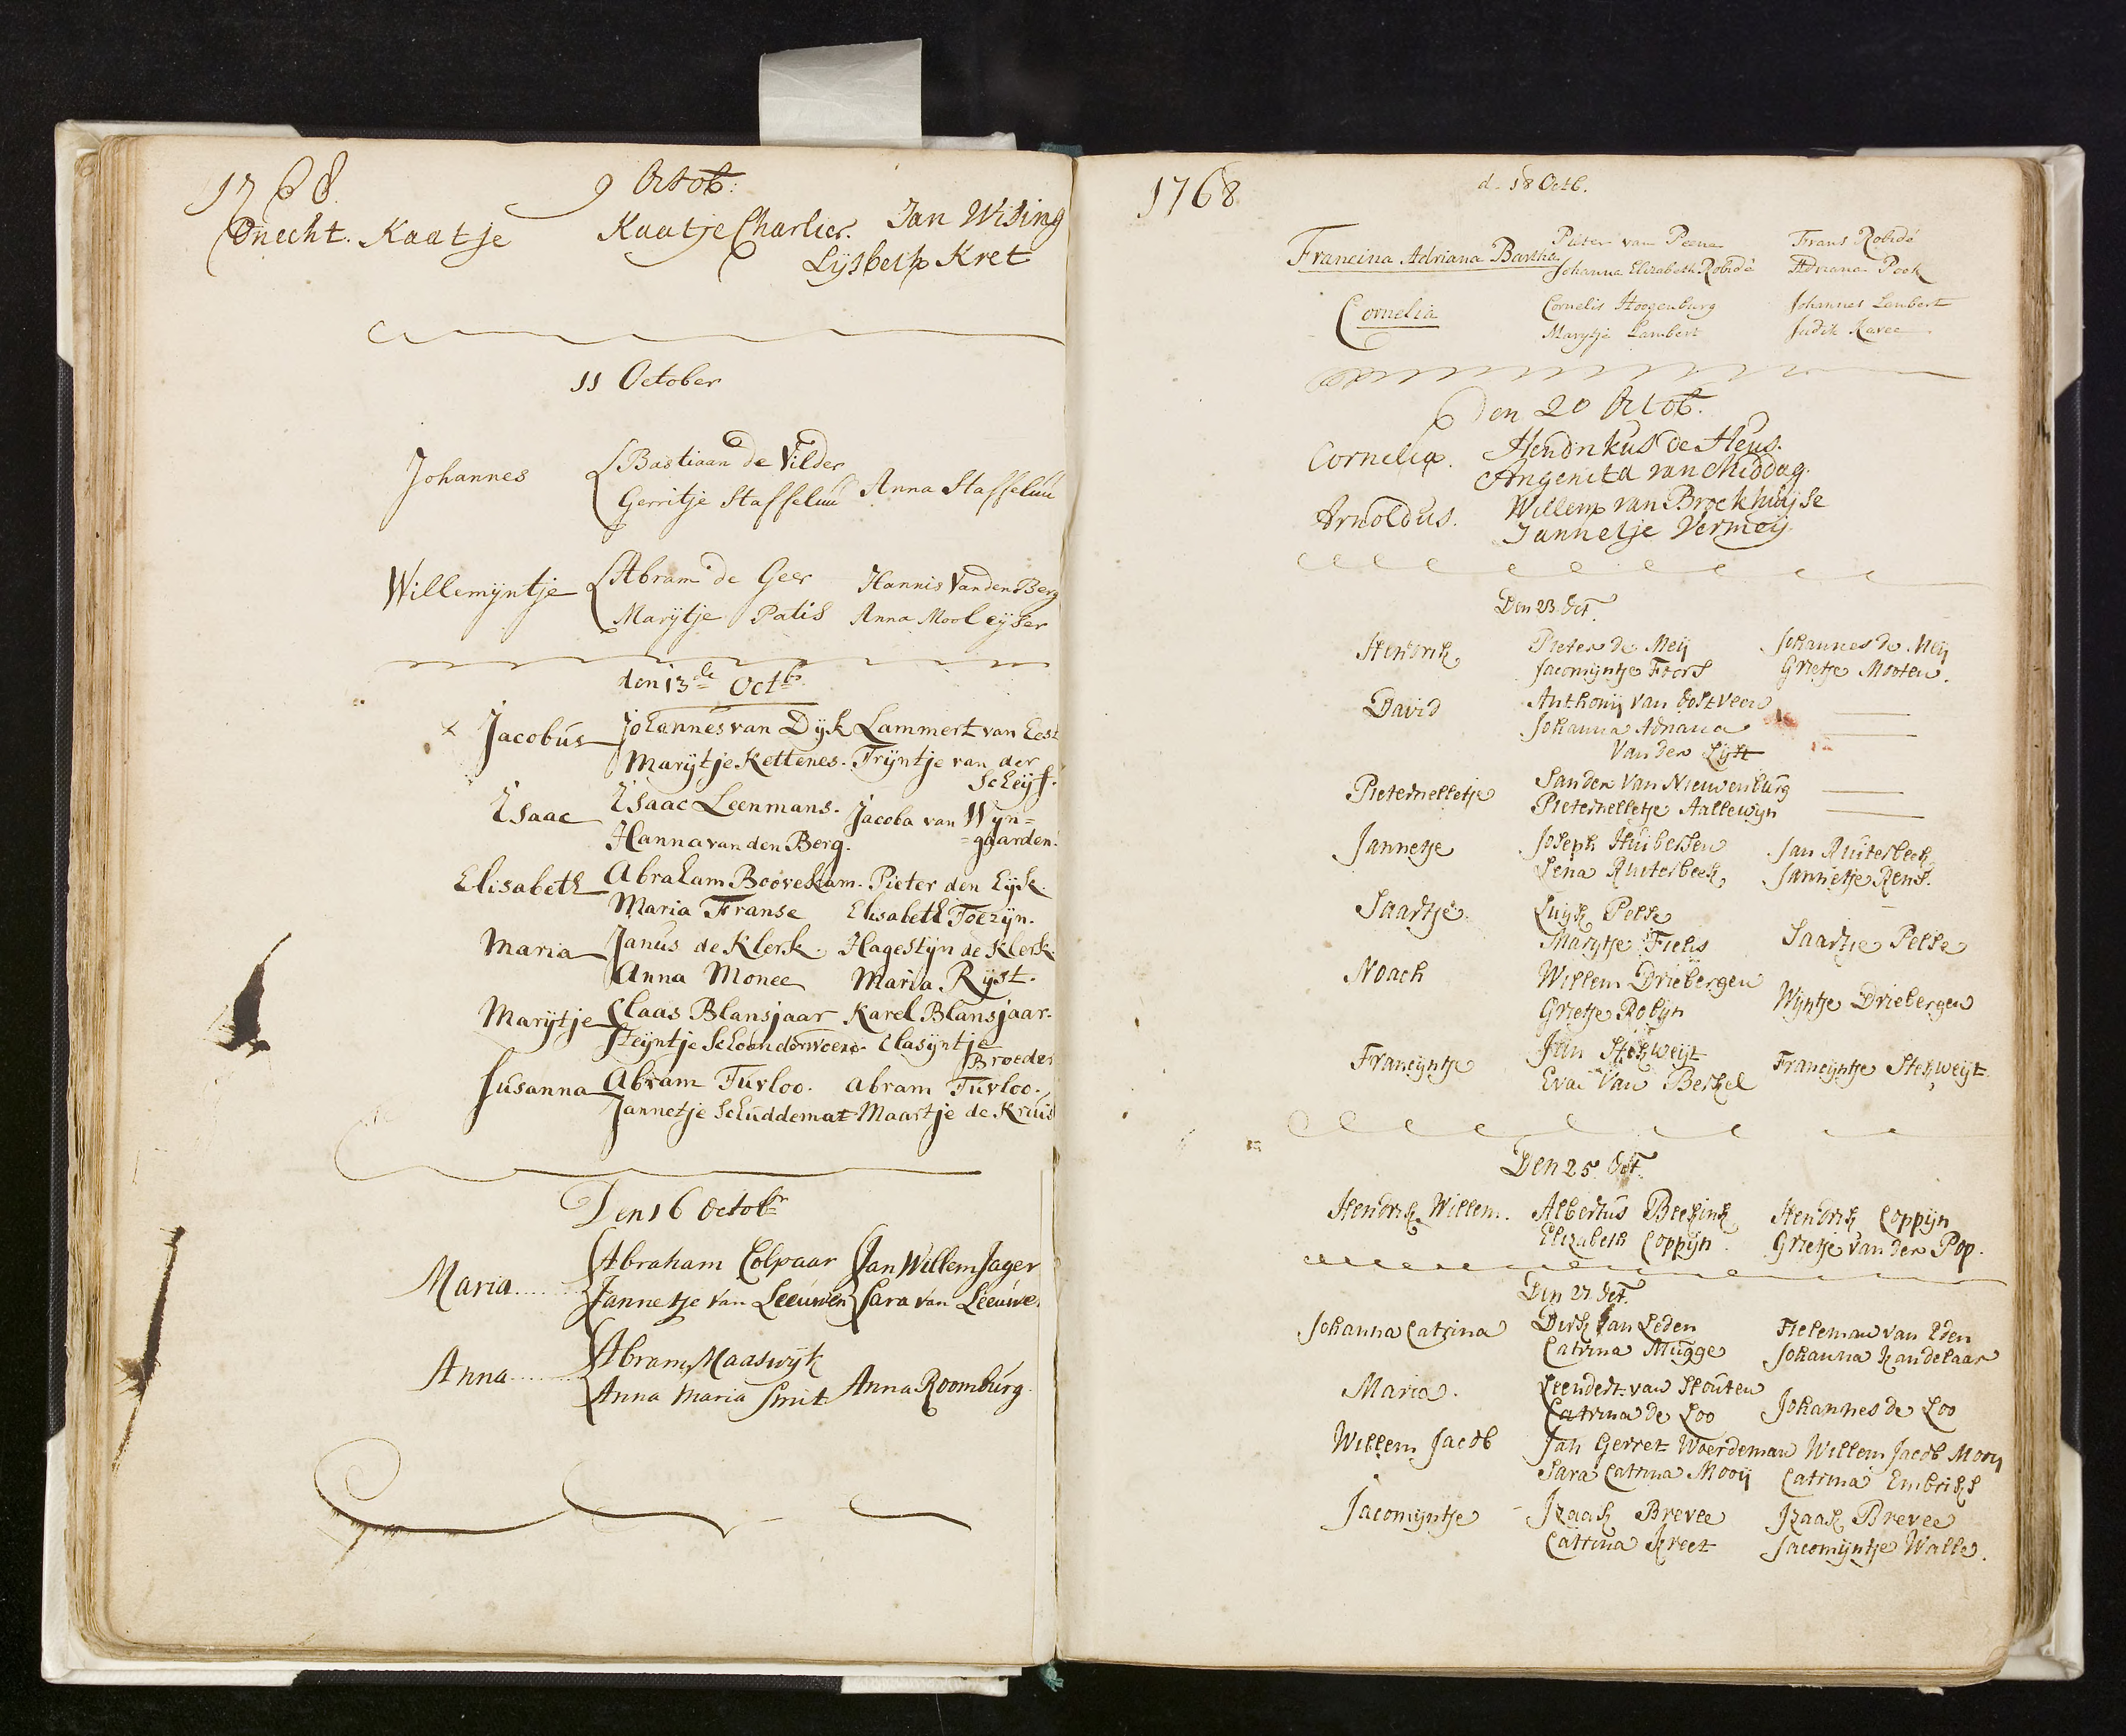 1768. 9 Octob:
Onecht. Kaatje Kaatje Charlier. Jan Wising
Lijsbeth Kret
11 October
Johannes Bastiaan de Vilder
Gerritje Staffeluu Anna Staffeluu
Willemijntje Abram de Geer Hannis Van den Berg
Marijtje Patis Anna Mooleyser
den 13de Octb.
x Jacobus Johannes van Dijk Lammert van Eest
Marijtje Kettenes. Trijntje van der
Scheijf.
Isaac Isaac Leenmans. Jacoba van Wijn=
Hanna van den Berg. =gaarden.
Elisabeth Abraham Boovekam. Pieter den Eijk.
Maria Franse Elisabeth Foezijn.
Maria Janus de Klerk. Hagestijn de Klerk.
Anna Monee Maria Rijst.
Marijtje Claas Blansjaar Karel Blansjaar.
Steijntje Schoonderwoerd. Clasijntje
Broeder
Susanna Abram Turloo. Abram Turloo.
Jannetje Schuddemat Maartje de Kruis
Den 16 Octobr
Maria Abraham Colpaar Jan Willem Jager
Jannetje van Leeuwen Sara van Leeuwe
Anna Abram Maaswijk
Anna Maria Smit Anna Roomburg.
1768 d. 18 Octb.
Pieter van Peena Frans Robidé
Francina Adriana Bartha Johanna Elizabeth Robidé Adriana Pook
Cornelia Cornelis Hoogenburg Johannes Lambert
Marijtje Lambert Judik Karee
Den 20 Octob.
Cornelia. Hendrikus de Heus.
Angenita van Middag.
Arnoldus. Willem van Brockhuijse
Jannetje Vermeij
Den 23 Oct.
Hendrik Pieter de Meij Johannes de Meij
Jacomijntje Floors Grietje Mooten.
David Anthonij van Oostveen
Johanna Adriana
Van der Lijst
Pieternelletje Sander Van Nieuwenburg
Pieternelletje Aallewijn
Jannetje Joseph Huibersen Jan Ruiterbeek
Lena Ruiterbeek, Jannetje Rens.
Saartje Luijk Pelle
Marijtje Fielis Saartje Pelle
Noach Willem Driebergen
Grietje Robijn Wijntje Driebergen
Francijntje Jan Stekweijt
Eva Van Berkel Francijntje Stekweijt.
Den 25 Oct.
Hendrik Willem. Albertus Beekink Hendrik Coppijn
Elizabeth Coppijn. Grietje van der Pop.
Den 27 Oct.
Johanna Catrina Dirk van Leden Tieleman van Eden
Catrina Mugge Johanna Kandelaar
Maria. Leendert van Stouten
Catrina de Loo Johannes de Loo
Willem Jacob Jan Gerret Woerdeman Willem Jacob Mooij
Sara Catrina Mooij Catrina Embriks
Jacomijntje Izaak Brevee Izaak Brevee
Catrina Kreet Jacomijntje Walle.